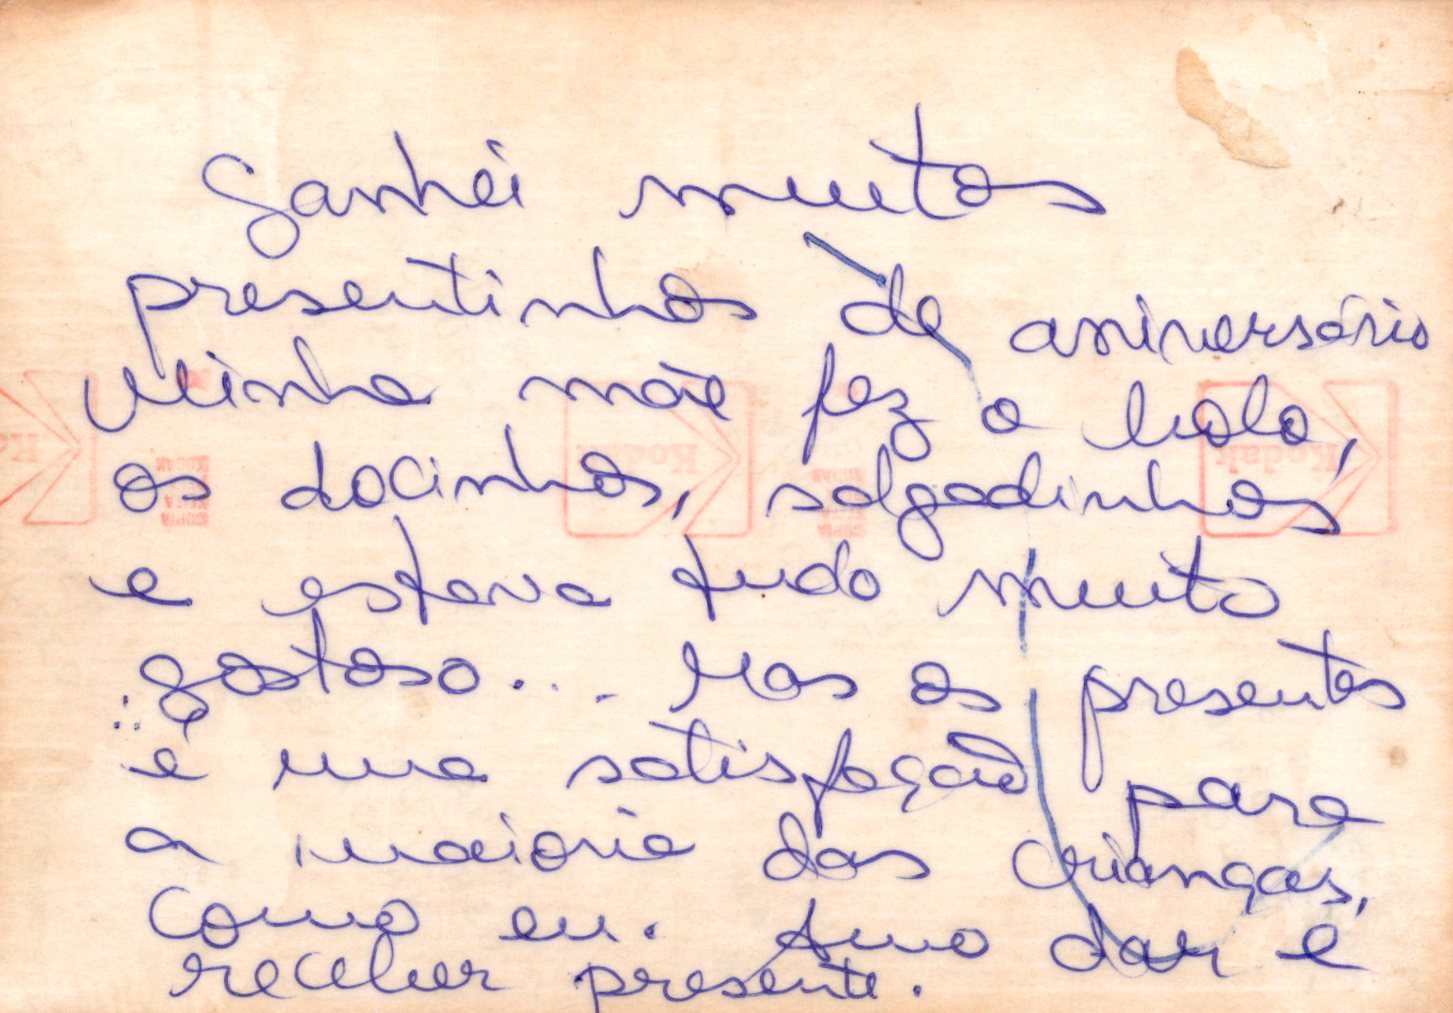 Ganhei muitos
presentinhos de aniversário
Minha mãe fez o bolo,
os docinhos, salgadinhos
e estava tudo muito
gostoso... Mas os presentes
é uma satisfação para
a maioria das crianças,
como eu. Amo dar e
receber presente.
Kodak
Kodak